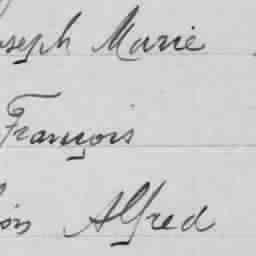 oseph Marie
François
ois Alfred